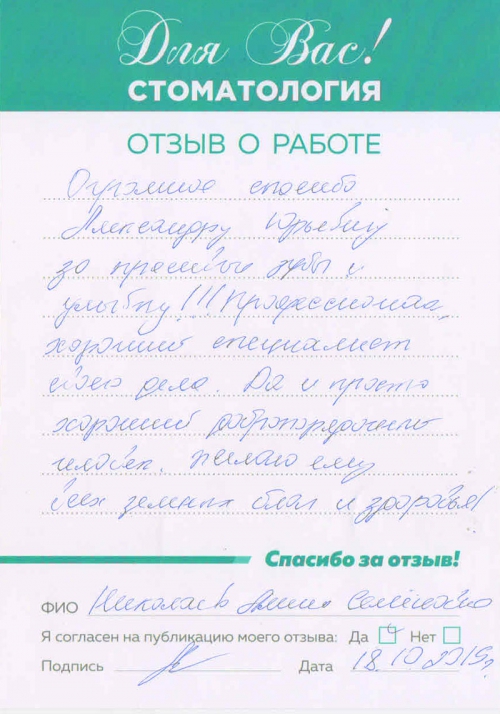 Для Вас!
СТОМАТОЛОГИЯ
ОТЗЫВ О РАБОТЕ
Огромное спасибо
Александру Юрьевичу
за красивые зубы и
улыбку!!! Профессионал,
хороший специалист
своего дела. Да и просто
хороший добропорядочный
человек. Желаю ему
всех земных благ и здоровья!
Спасибо за отзыв!
ФИО
Я согласен на публикацию моего отзыва: Да Нет
Подпись Дата 18.10.2019г